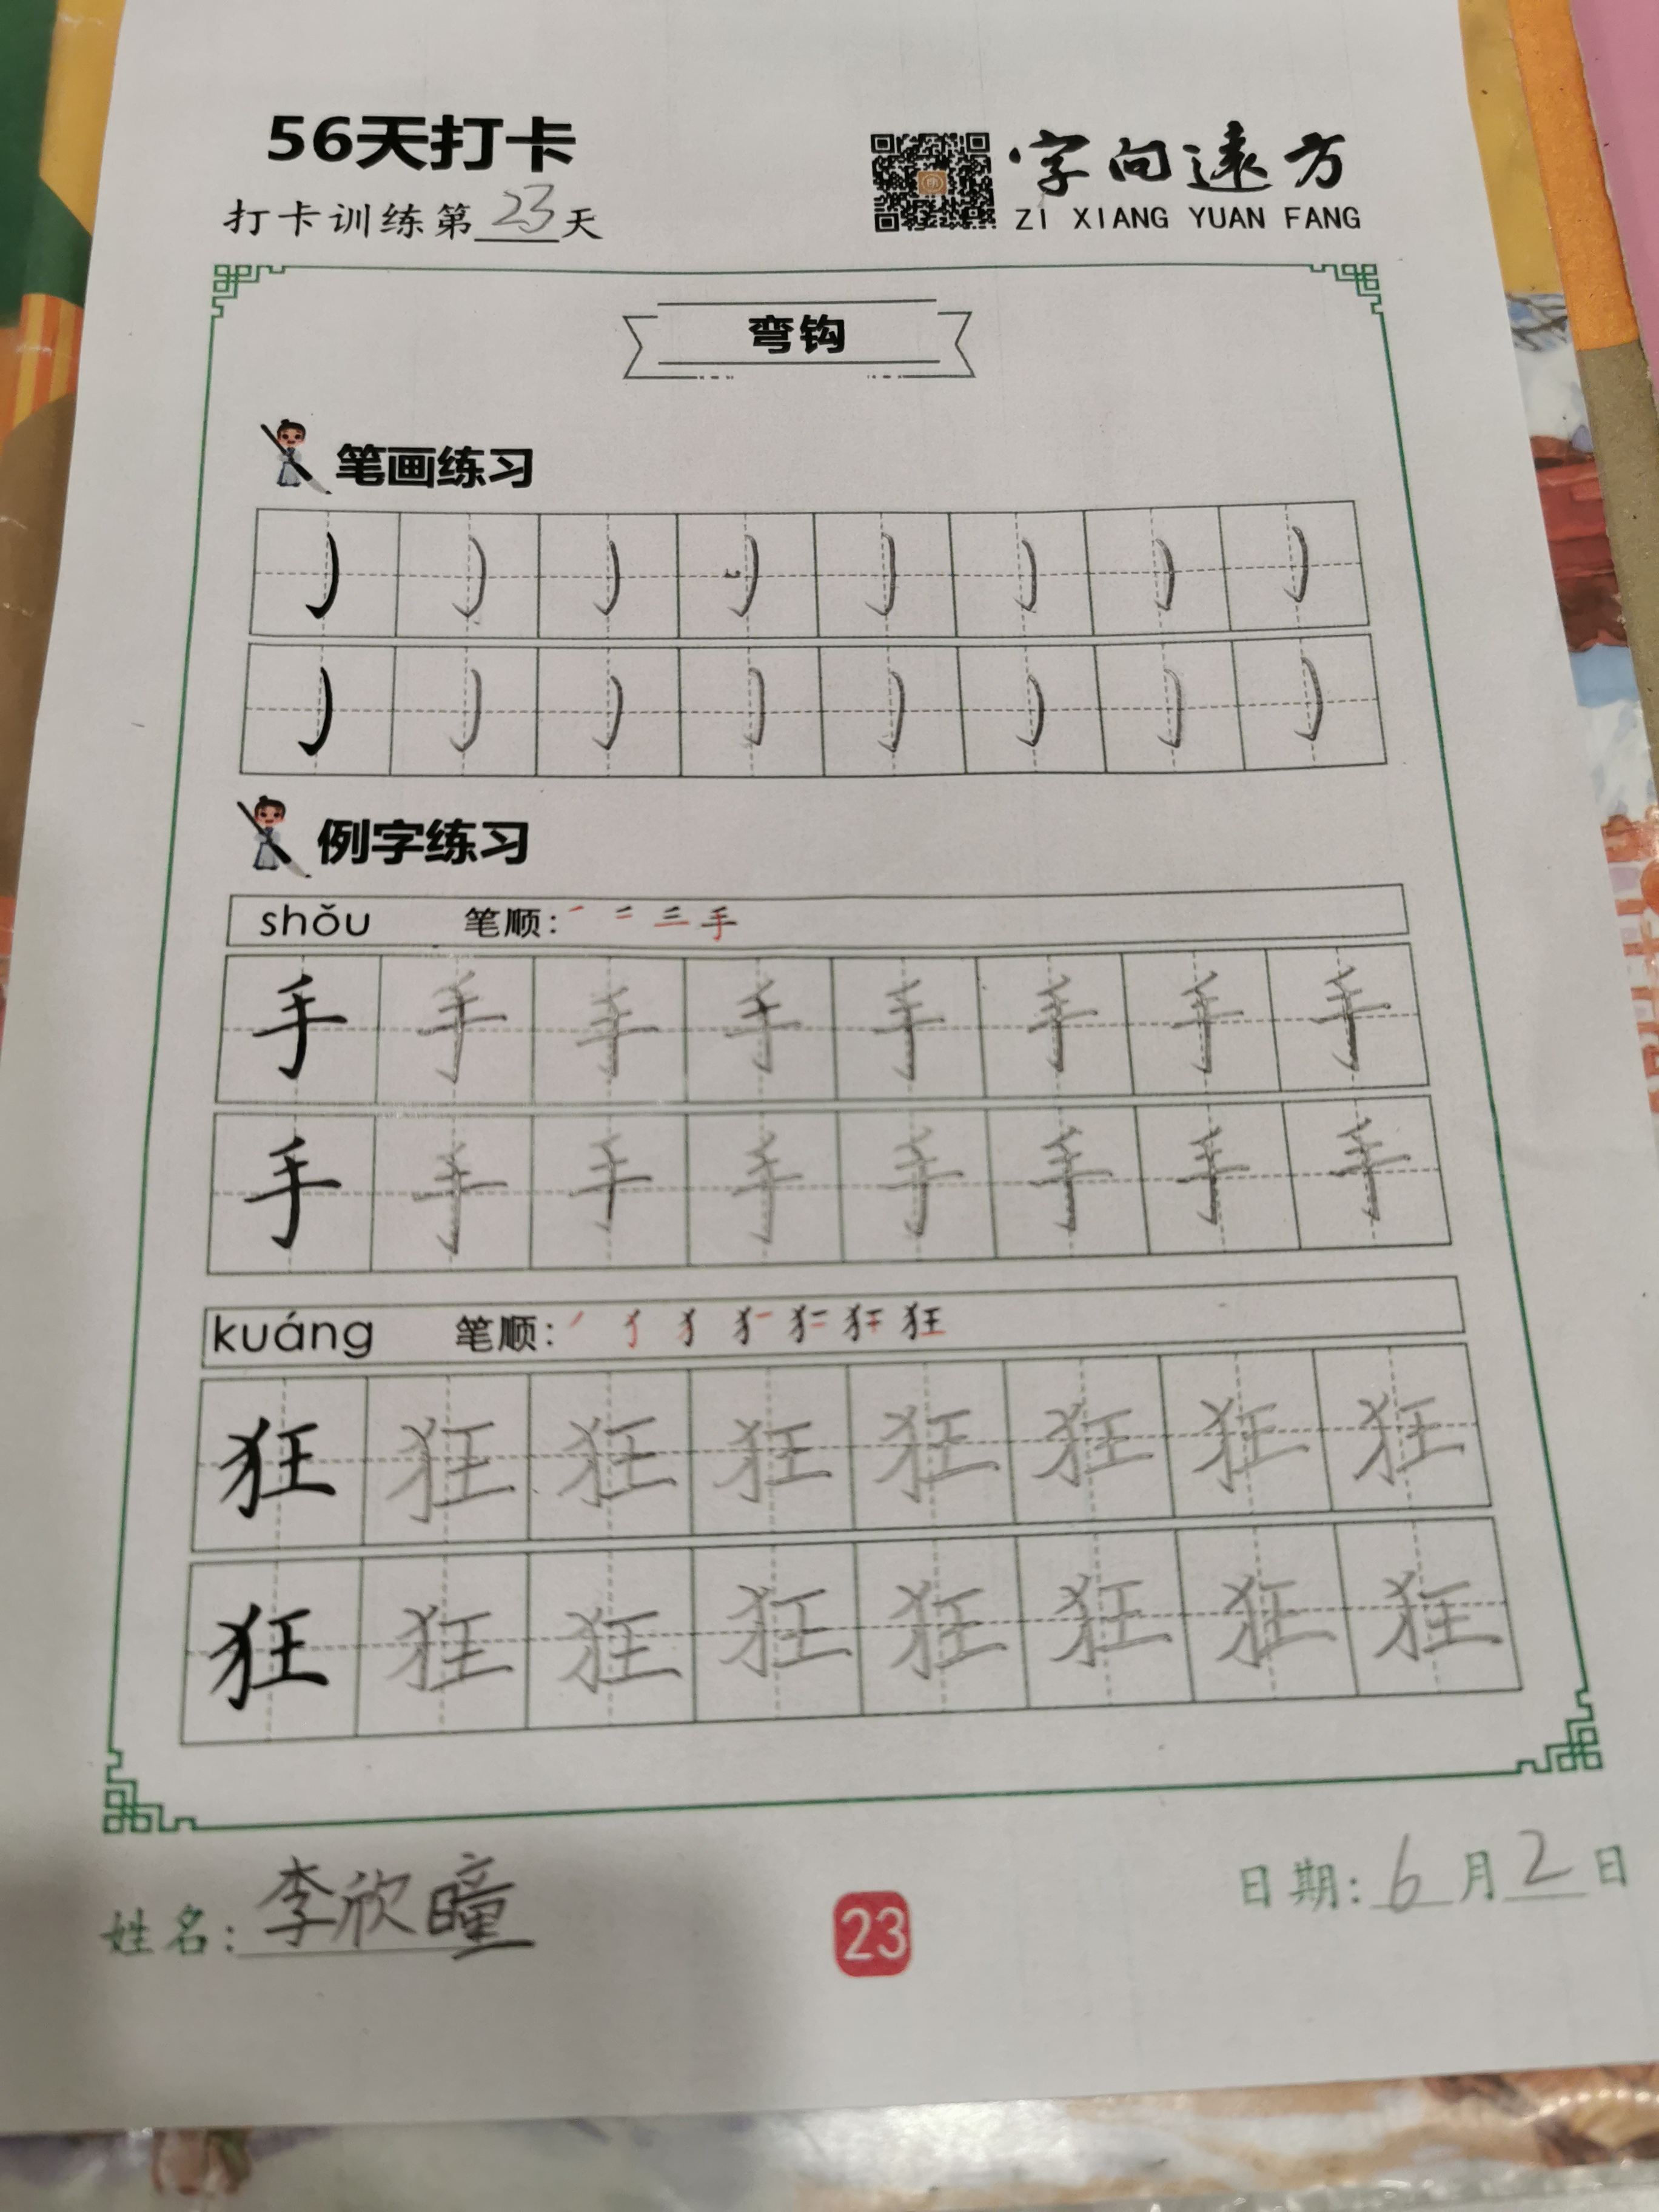 56天打卡
打卡训练第23天
字向遠方
ZI XIANG YUAN FANG
弯钩
笔画练习
例字练习
shǒu 笔顺: 手
手 手 手 手 手 手 手 手
手 手 手 手 手 手 手 手
kuáng 笔顺: 狂
狂 狂 狂 狂 狂 狂 狂 狂
狂 狂 狂 狂 狂 狂 狂 狂
姓名: 李欣瞳
23
日期: 6月2日